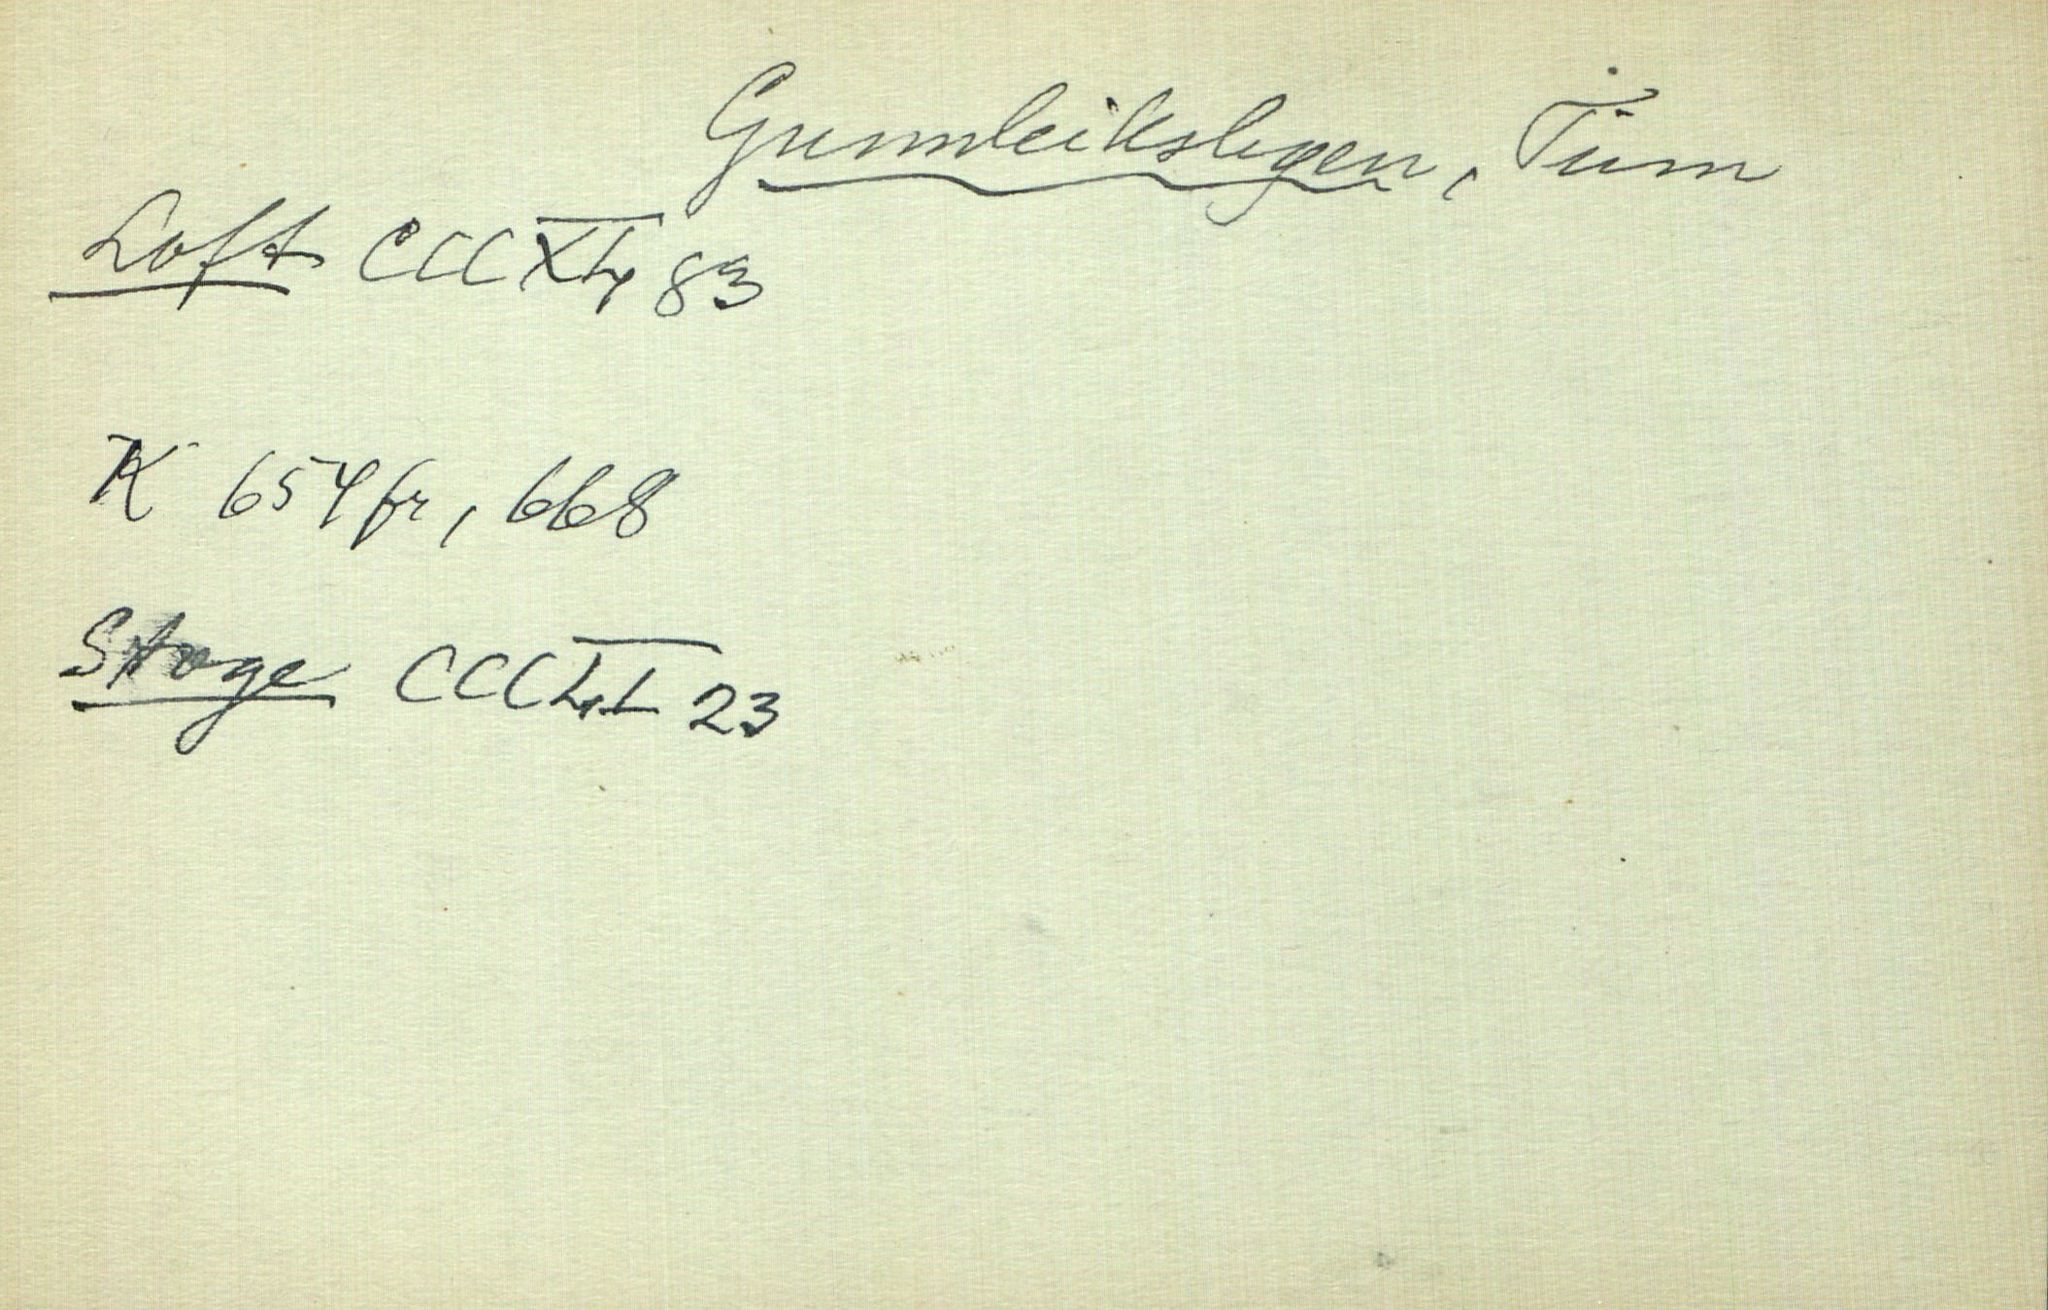 Gunnleikslegen, Tinn
Loft CCCXL 83
K 654 fr, 668
Stoge CCCLI 23